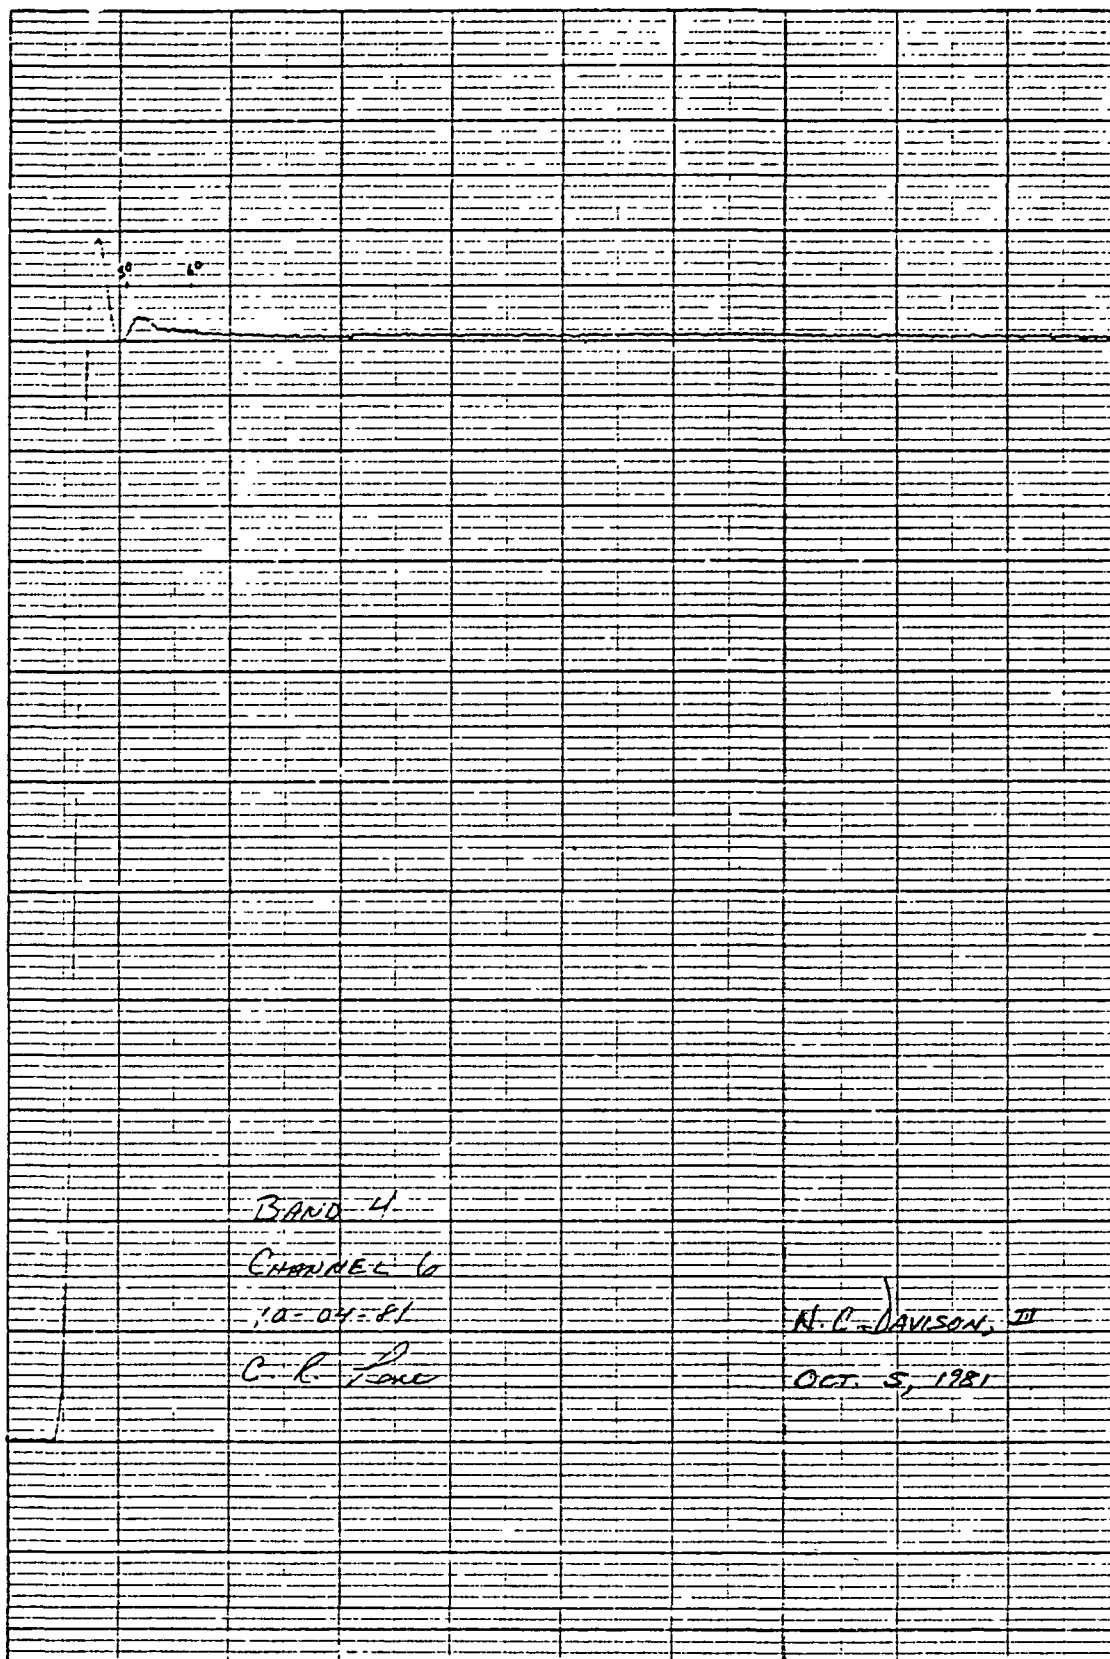 50
60
BAND 4
CHANNEL 6
10-04-81
C. R.
N. C. DAVISON, III
OCT. 5, 1981